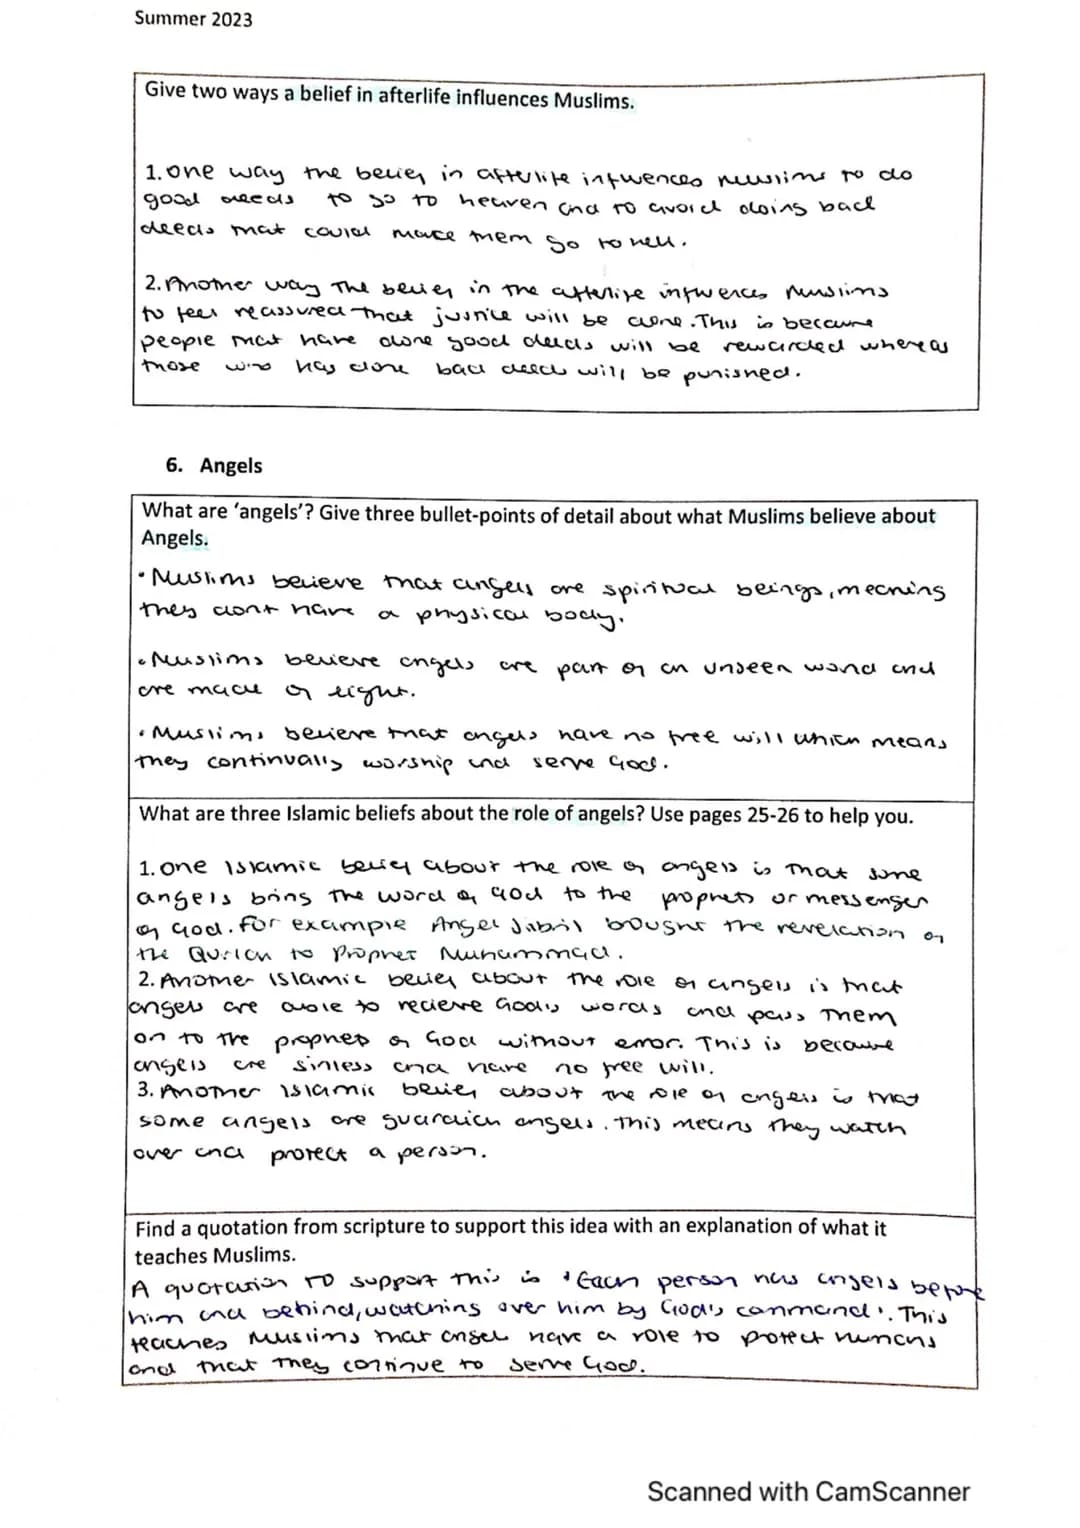 Summer 2023
Give two ways a belief in afterlife influences Muslims.
1. One way the belief in afterlife influences Muslims to do
good deeds to go to heaven and to avoid doing bad
deeds that could make them go to hell.
2. Another way the belief in the afterlife influences Muslims
to feel reassured that justice will be done. This is because
people that have done good deeds will be rewarded whereas
those who has done bad deeds will be punished.
6. Angels
What are 'angels'? Give three bullet-points of detail about what Muslims believe about
Angels.
• Muslims believe that angels are spiritual beings, meaning
they dont have a physical body.
• Muslims believe angels are part of an unseen world and
are made of light.
• Muslims believe that angels have no free will which means
they continually worship and serve God.
What are three Islamic beliefs about the role of angels? Use pages 25-26 to help you.
1. One Islamic belief about the role of angels is that some
angels bring the word of God to the prophets or messenger
of God. For example Angel Jibril bought the revelation of
the Qur'an to Prophet Muhammad.
2. Another Islamic belief about the role of angels is that
angels are able to recieve God's words and pass them
on to the prophets of God without error. This is because
angels are sinless and have no free will.
3. Another Islamic belief about the role of angels is that
some angels are guardian angels. This means they watch
over and protect a person.
Find a quotation from scripture to support this idea with an explanation of what it
teaches Muslims.
A quotation to support this is 'Each person has angels before
him and behind, watching over him by God's command'. This
teaches Muslims that angel have a role to protect humans
and that they continue to serve God.
Scanned with CamScanner